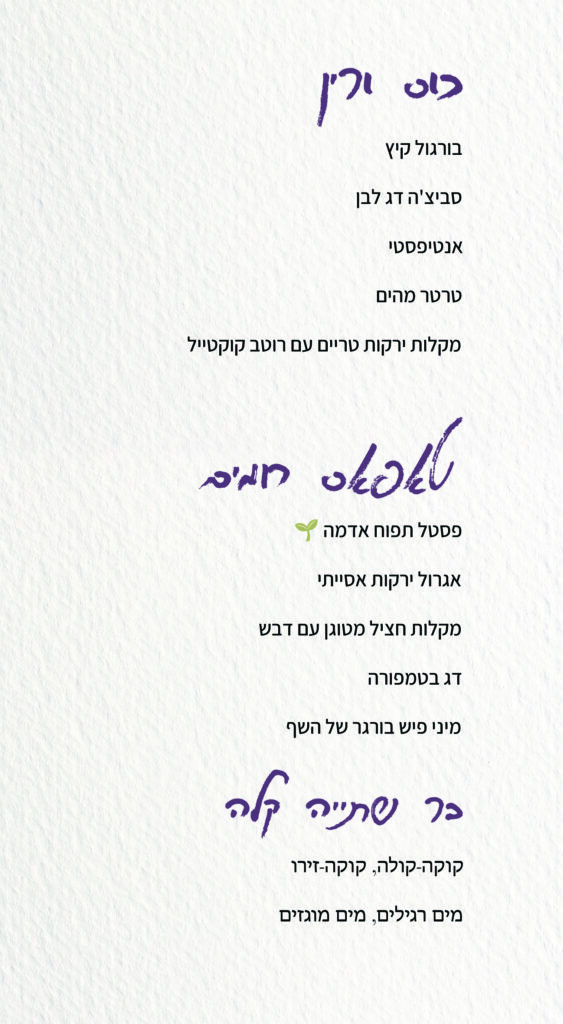 כוס ורין
בורגול קיץ
סביצ'ה דג לבן
אנטיפסטי
טרטר מהים
מקלות ירקות טריים עם רוטב קוקטייל
טאפאס חמים
פסטל תפוח אדמה 🌱
אגרול ירקות אסייתי
מקלות חציל מטוגן עם דבש
דג בטמפורה
מיני פיש בורגר של השף
בר שתייה קלה
קוקה-קולה, קוקה-זירו
מים רגילים, מים מוגזים